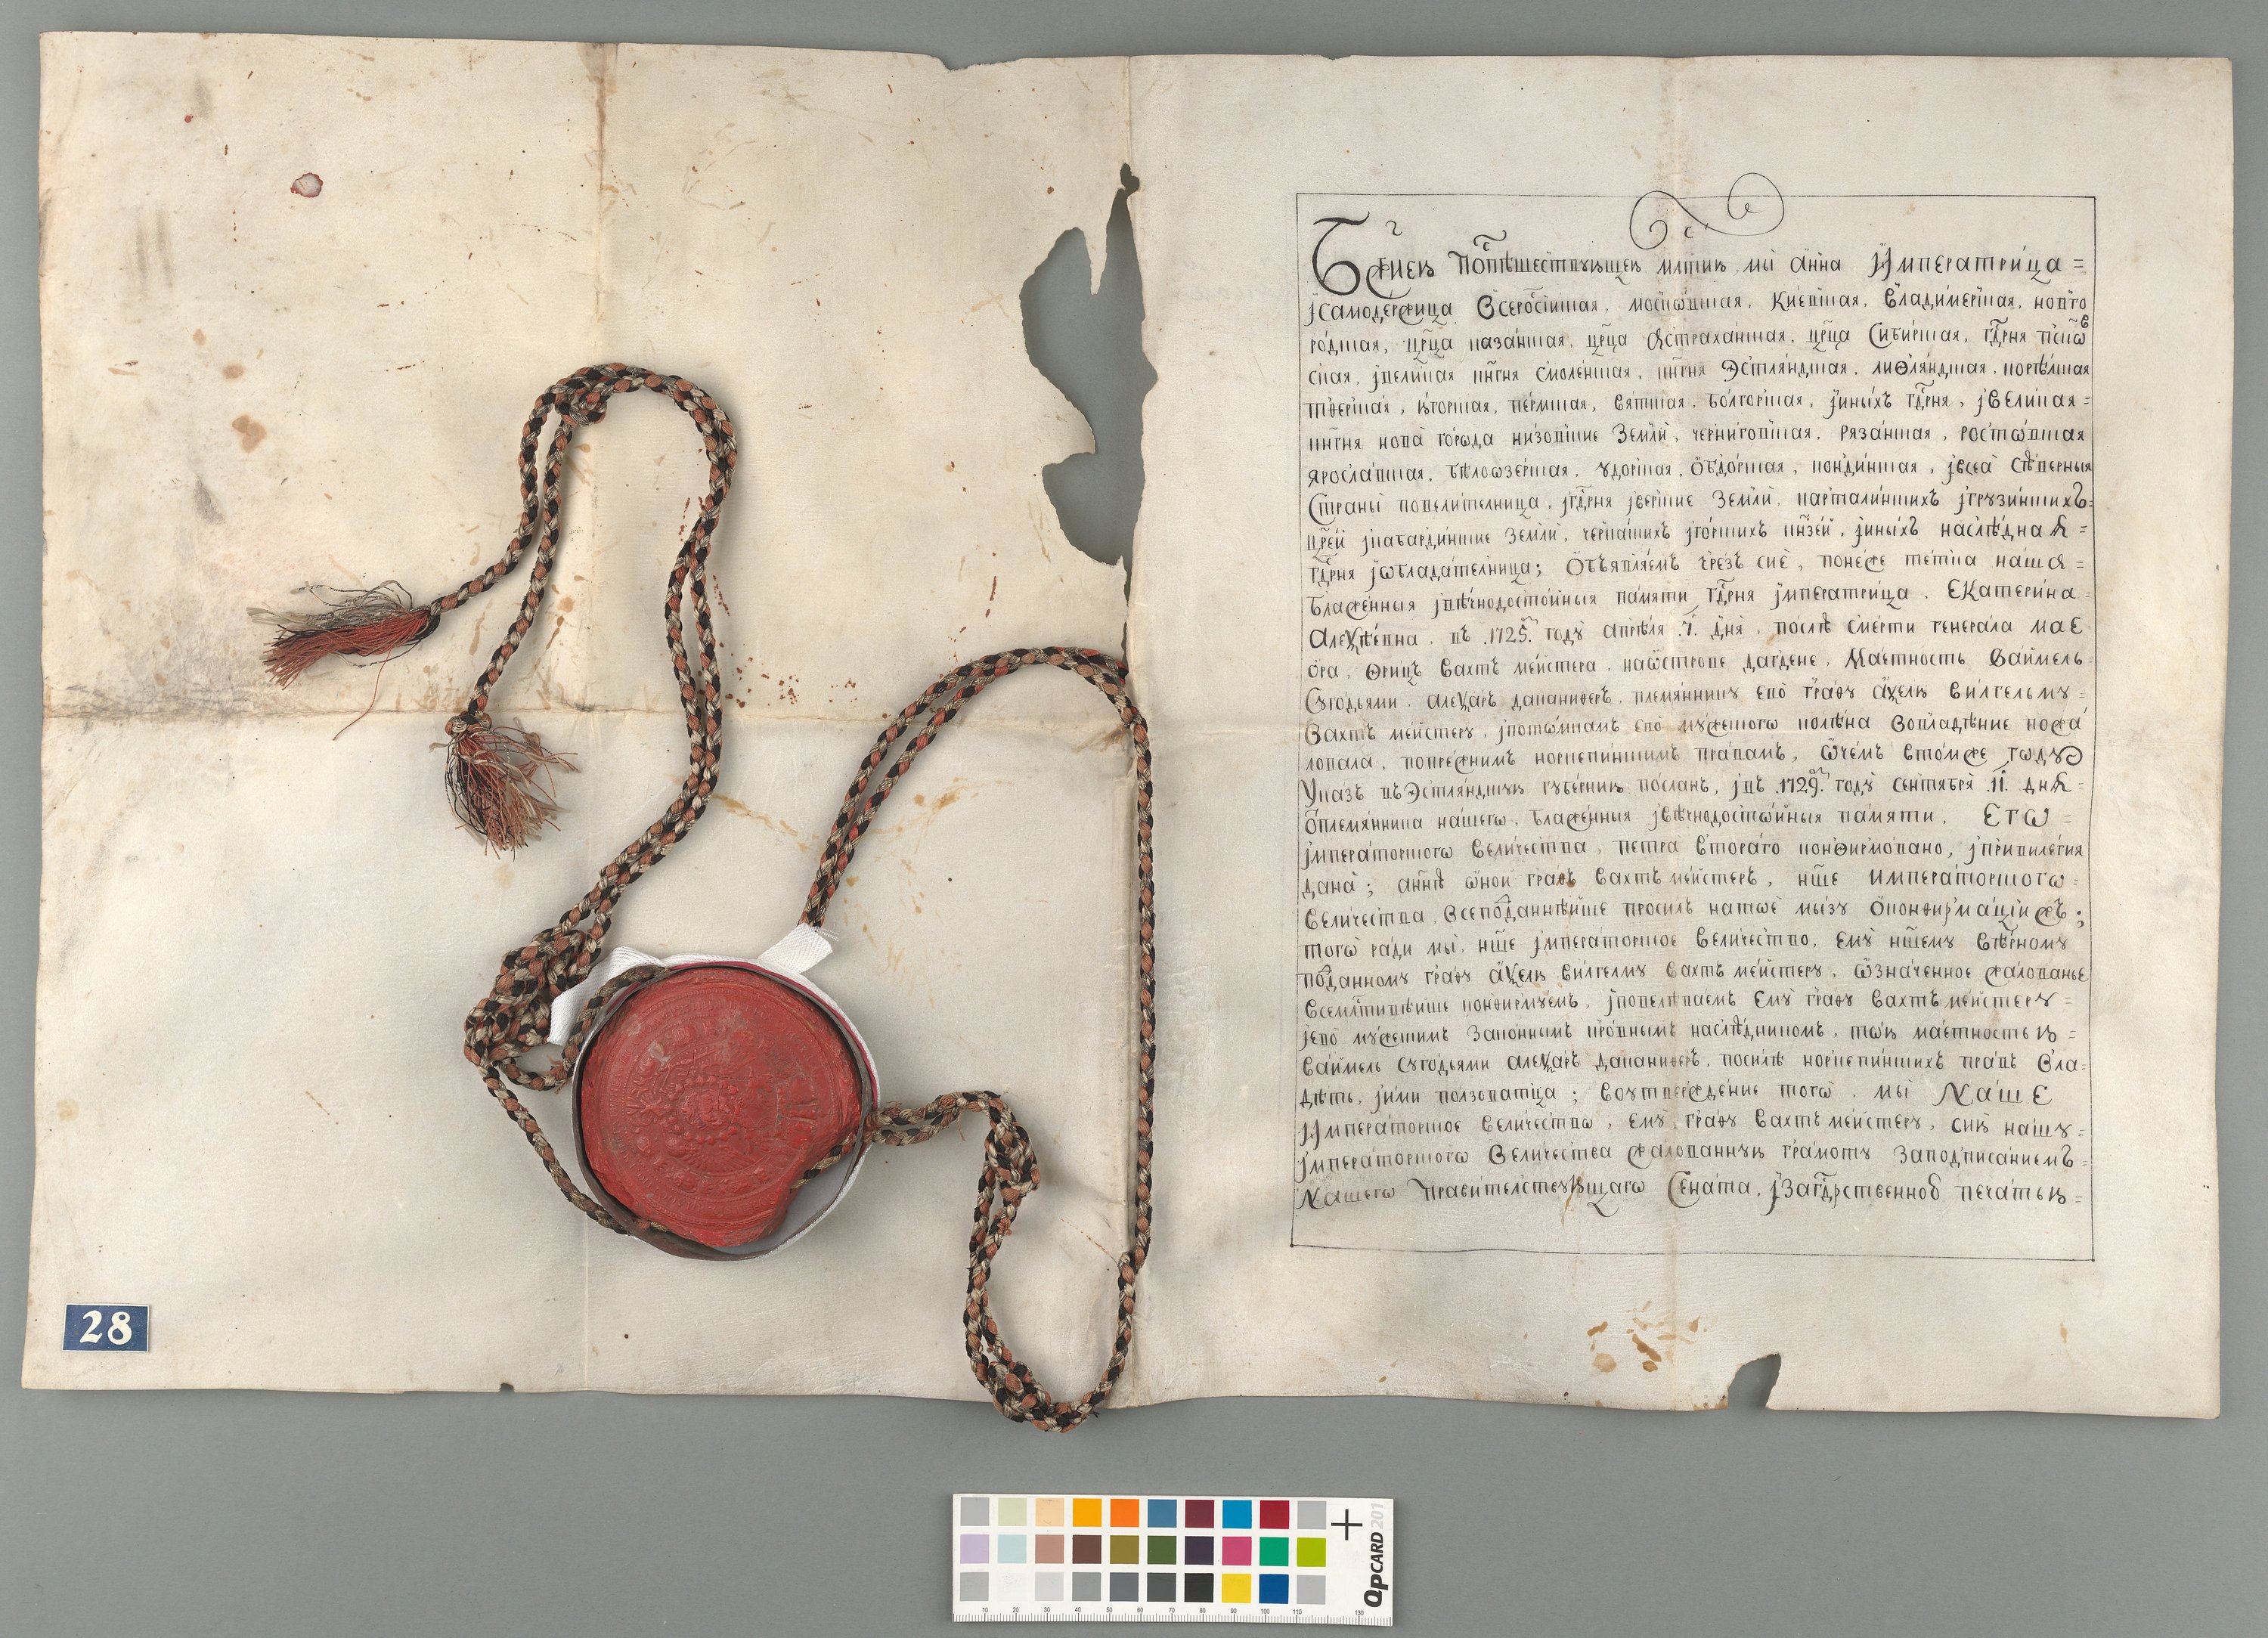 Бж҃иею поспѣшествующею млⷭ҇тию мы анна Императрица =
ісамодержица Всеросіиская, московская, Киевская, Владимерская, новго
родская, црⷪ҇ца казанская, црⷪ҇ца Астраханская, црⷪ҇ца Сибирская, гдⷭ҇рня псков
ская, івеликая кнⷢ҇ня смоленская, кнⷢ҇ня Эстляндская, лиѳляндская, корѣлская
тверская, югорская, пермская, вятская, болгорская, іиныхъ гдⷭ҇рня, івеликая =
кнⷢ҇ня нова города низовские земли, черниговская, рязанская, ростовская
ярославская, бѣлоозерская, удорская, обдорская, кондинская, івсеа сѣверныя
страны повелителница, ігдⷭ҇рня іверские земли, карталинскихъ ігрузинскихъ =
црⷭ҇ей ікабардинские земли, черкаскихъ ігорскихъ кнзей, іиныхъ наслѣдная =
гдⷭ҇рня іѡбладателница; Объявляемъ чрезъ сие, понеже тетка наша =
блаженныя івѣчнодостойныя памяти гдⷭ҇рня імператрица. Екатерина
Алеѯѣевна. въ .1725.ᵐ году апрѣля .7. дня, послѣ смерти генерала мае
ора, ѳрицъ вахтъ мейстера, наѡстрове дагдене, Маетность Ваймель
Сугодьями. алеѯаръ даканиѳеръ, племяннику ево граѳу аѯелю вилгельму =
Вахтъ мейстеру, іпотѡмкамъ ево мужескогѡ колѣна Вовладѣние пожа
ловала, попрежнимъ норкепинскимъ правамъ, ѡчемъ втомже гѡду
Указъ въЭстляндскую губернию посланъ, івъ .1729.ᵐ году сентября .11. дня =
ѿплемянника нашегѡ, блаженныя івѣчнодостѡйныя памяти, Егѡ =
імператорскогѡ величества, петра втораго конѳирмовано, іпривилегия
дана; аннѣ ѡной граѳъ вахтъ мейстеръ, нше императорскогѡ =
величества, всеподаннѣйше просилъ натое мызу ѡконѳирмаціи жъ;
тогѡ ради мы, нше імператорское величество, ему ншему вѣрному
поданному граѳу аѯелю вилгелму вахтъ мейстеру, ѡзначенное жалованье
всемлⷭ҇тивѣише конѳирмуемъ, іповелѣваемъ ему граѳу вахтъ мейстеру =
іево мужескимъ законнымъ іроднымъ наслѣдникомъ, тѡю маетностью =
ваймель сугодьями алеѯаръ даканиѳеръ, посилѣ норкепинскихъ правъ вла =
дѣть, іими ползоватца; воутверждение тогѡ, мы Наше
Императорское величествѡ, ему граѳу вахтъ мейстеру, сию нашу =
імператорскогѡ величества жалованную грамоту заподписаниемъ =
Нашегѡ Правителствующагѡ Сената, ізагдⷭ҇рственною печатью =
28
QPCARD 201
10 20 30 40 50 60 70 80 90 100 110 130